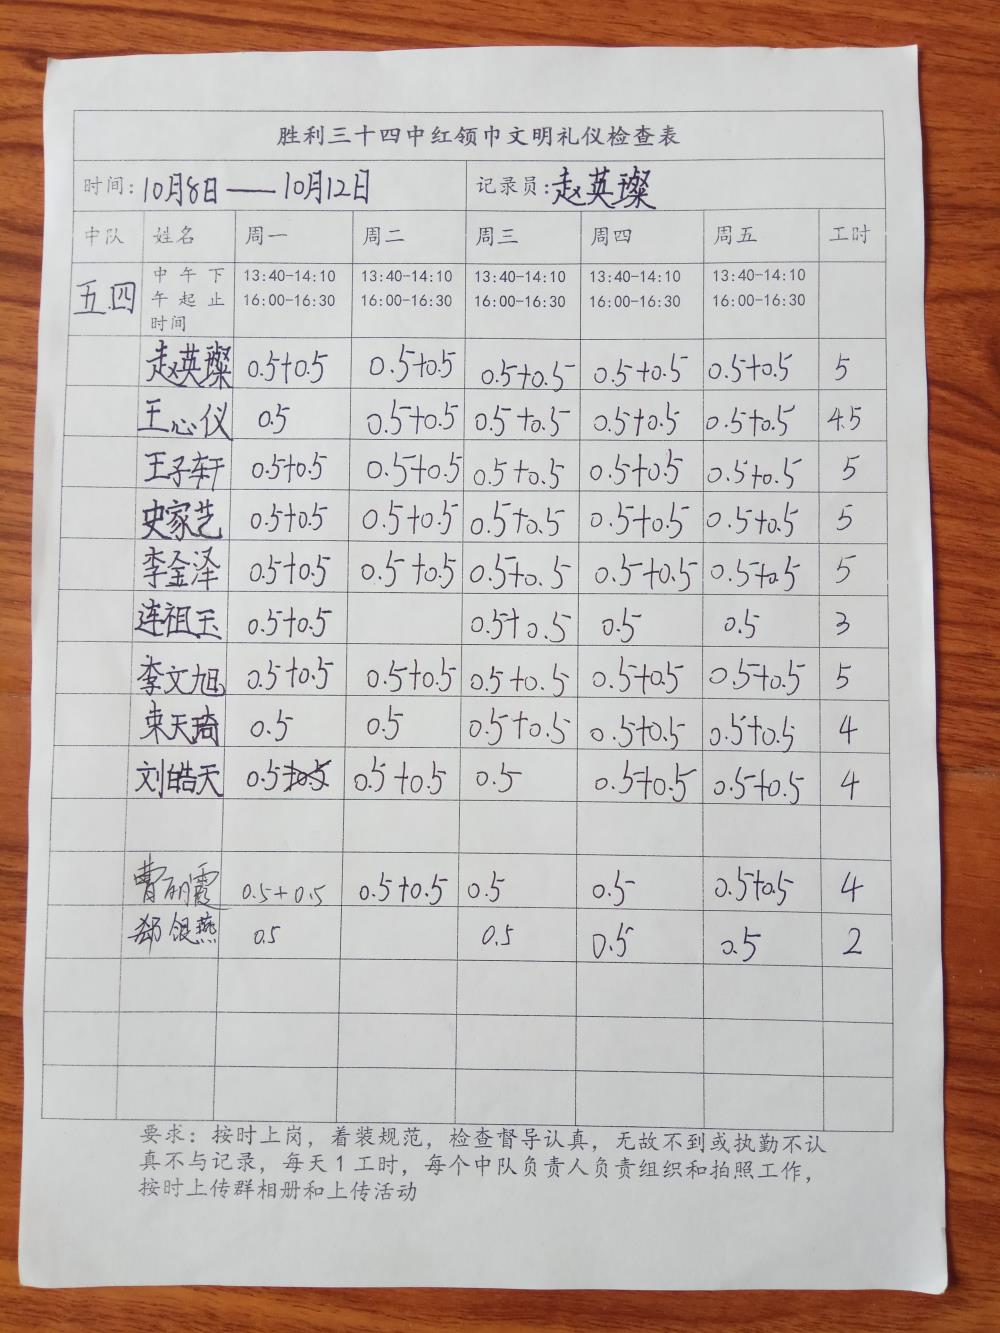 胜利三十四中红领巾文明礼仪检查表
时间：10月8日——10月12日 记录员：赵英璨
中队 姓名 周一 周二 周三 周四 周五 工时
五.四 中午下午起止时间 13:40-14:10 16:00-16:30 13:40-14:10 16:00-16:30 13:40-14:10 16:00-16:30 13:40-14:10 16:00-16:30 13:40-14:10 16:00-16:30
赵英璨 0.5+0.5 0.5+0.5 0.5+0.5 0.5+0.5 0.5+0.5 5
王心仪 0.5 0.5+0.5 0.5+0.5 0.5+0.5 0.5+0.5 4.5
王子轩 0.5+0.5 0.5+0.5 0.5+0.5 0.5+0.5 0.5+0.5 5
史家艺 0.5+0.5 0.5+0.5 0.5+0.5 0.5+0.5 0.5+0.5 5
李金泽 0.5+0.5 0.5+0.5 0.5+0.5 0.5+0.5 0.5+0.5 5
连祖玉 0.5+0.5 0.5+0.5 0.5 0.5 3
李文旭 0.5+0.5 0.5+0.5 0.5+0.5 0.5+0.5 0.5+0.5 5
束天琦 0.5 0.5 0.5+0.5 0.5+0.5 0.5+0.5 4
刘皓天 0.5 0.5+0.5 0.5 0.5+0.5 0.5+0.5 4
曹丽霞 0.5+0.5 0.5+0.5 0.5 0.5 0.5+0.5 4
郑银燕 0.5 0.5 0.5 0.5 2
要求：按时上岗，着装规范，检查督导认真，无故不到或执勤不认
真不与记录，每天1工时，每个中队负责人负责组织和拍照工作，
按时上传群相册和上传活动